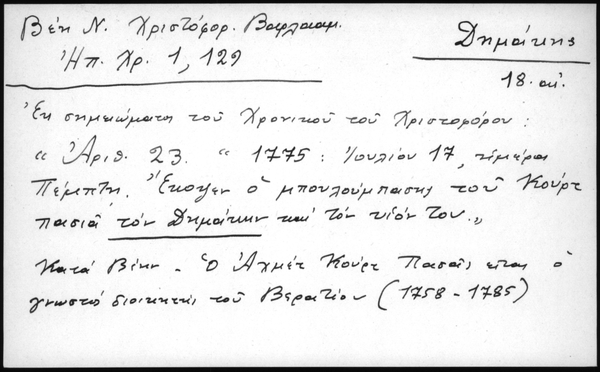 Βέη Ν. Χριστόφορ. Βαρλααμ.
Ἠπ. Χρ. 1, 129
Δημάκης
18. αἰ.
Ἐκ σημειώματος τοῦ Χρονικοῦ τοῦ Χριστοφόρου :
"Ἀριθ. 23. " 1775 : Ἰουλίου 17, ἡμέρα
Πέμπτη. Ἔκοψεν ὁ μπουλούμπασης τοῦ Κούρτ
πασιᾶ τόν Δημάκην καί τόν υἱόν του."
Κατά Βέην - Ὁ Ἀχμέτ Κούρτ Πασᾶς εἶναι ὁ
γνωστός διοικητής τοῦ Βερατίου (1758 - 1785)